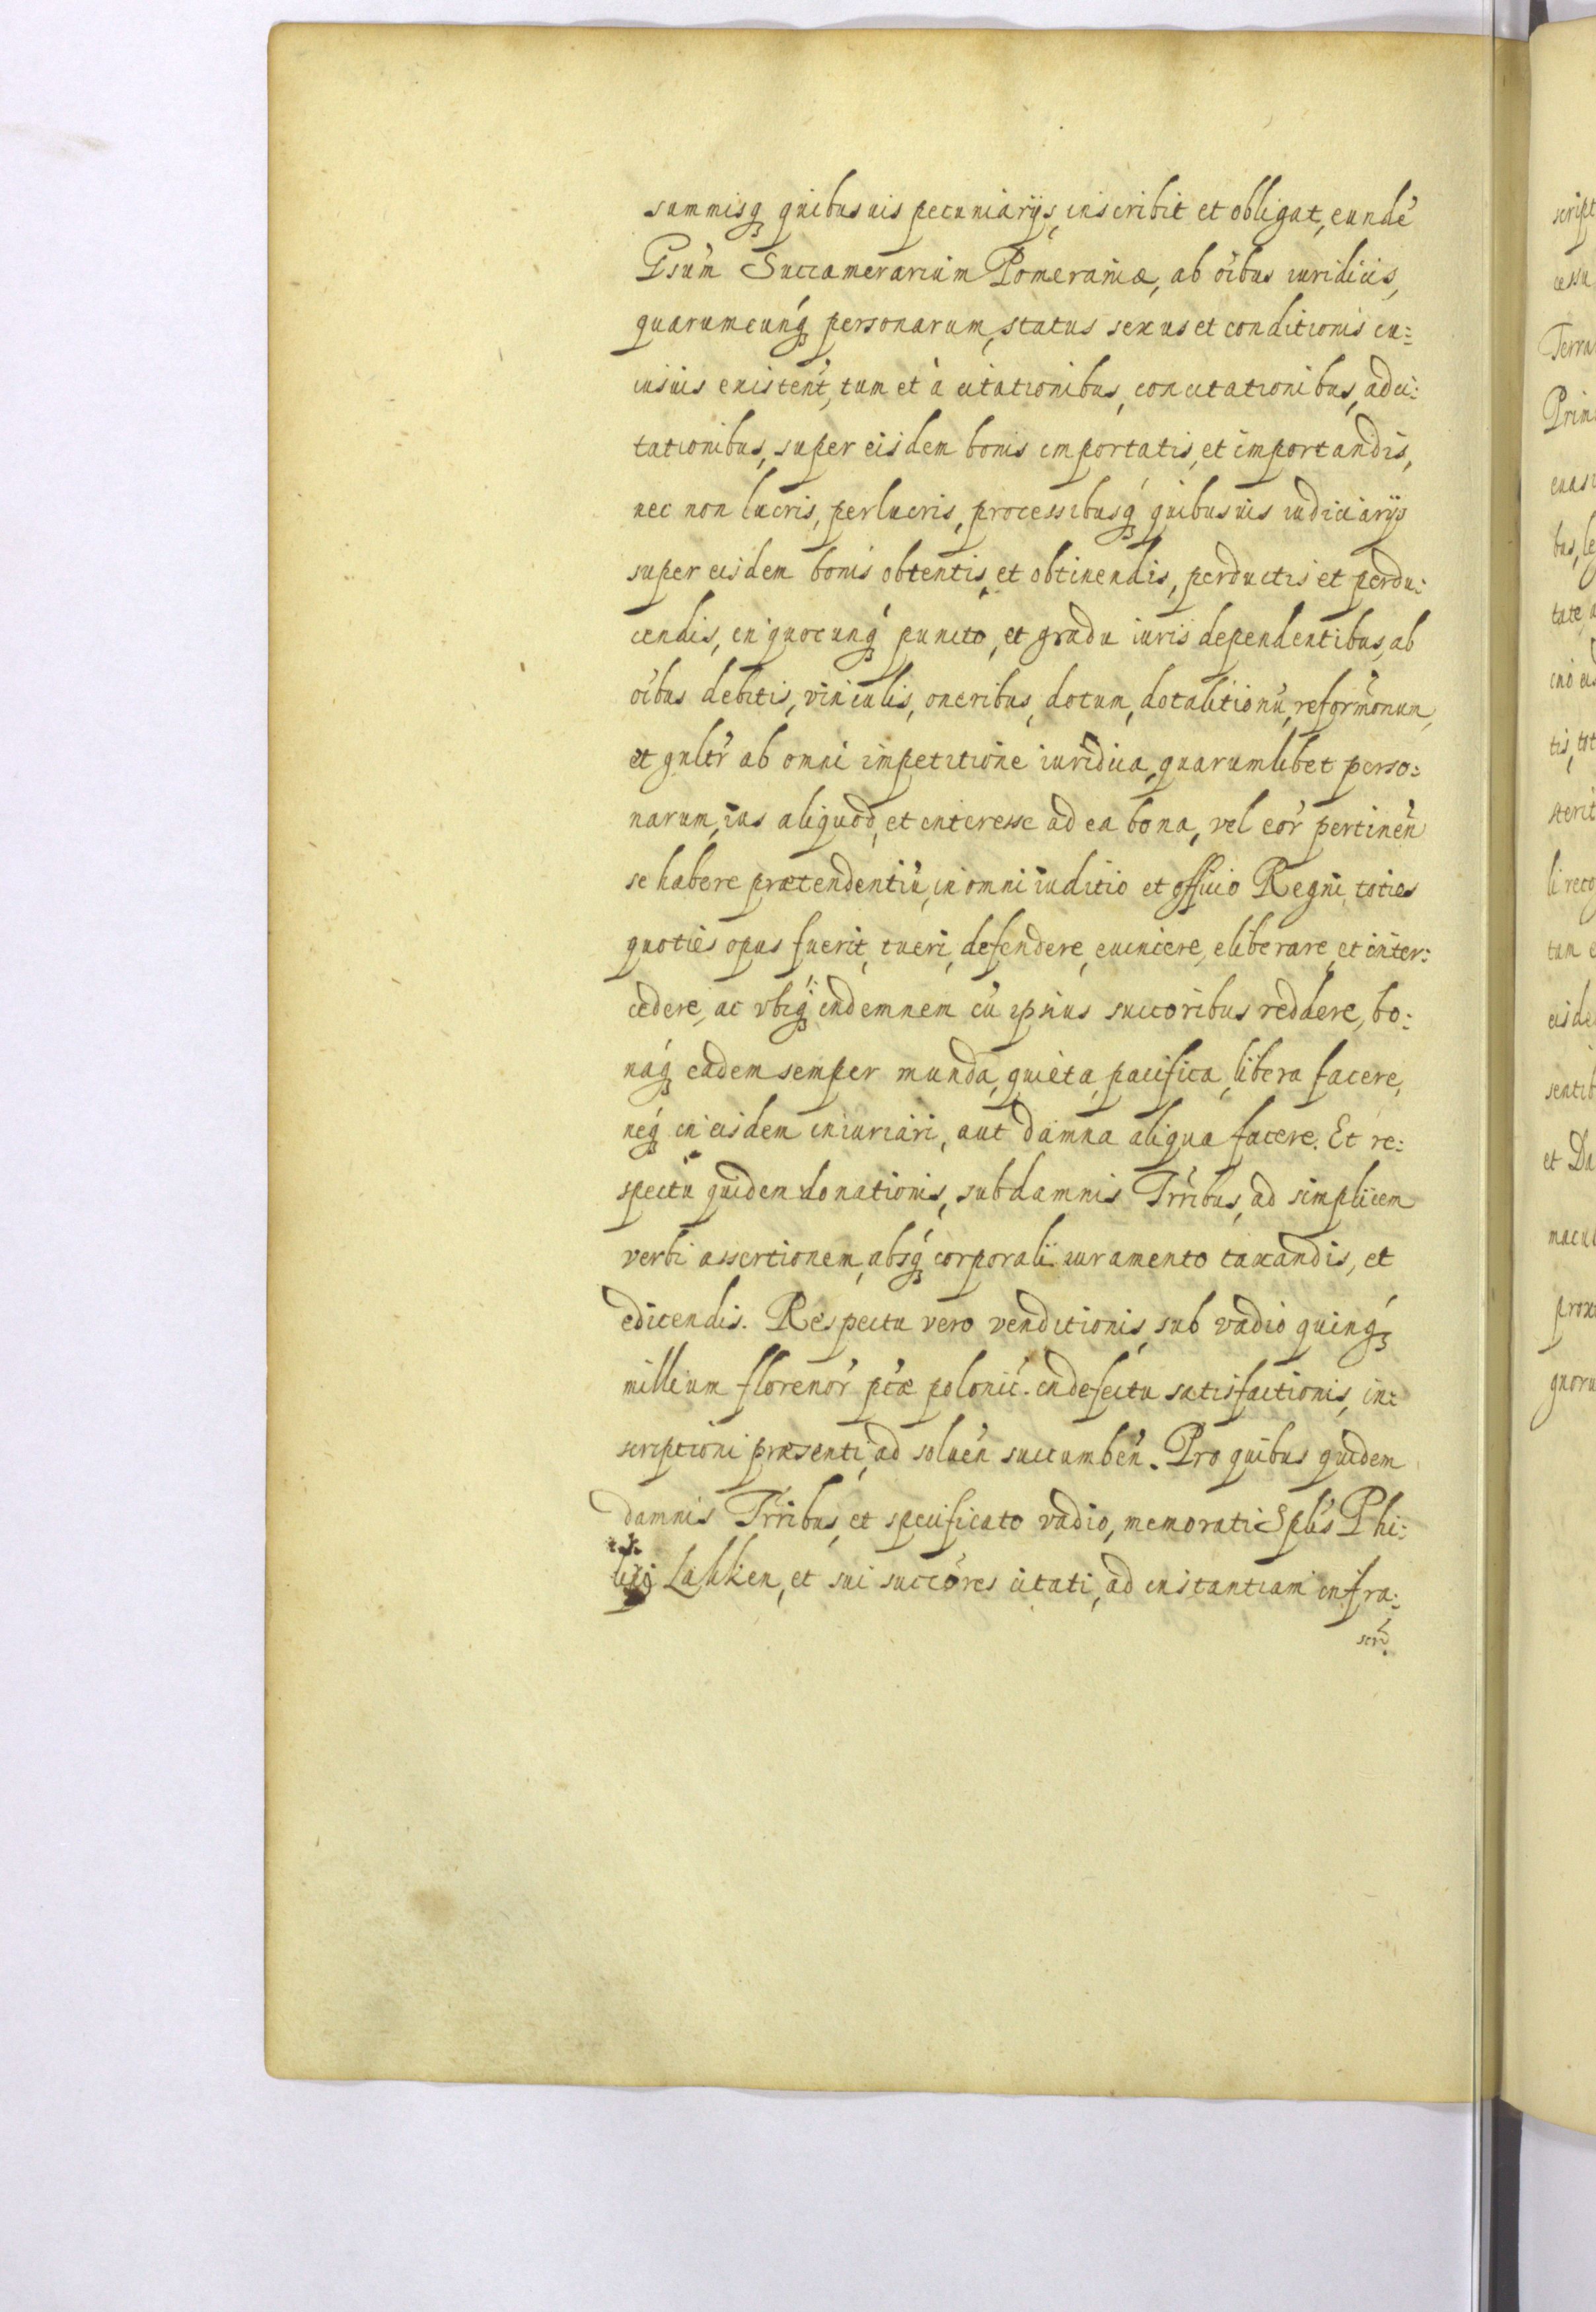 summisq́ꝫ quibusuis pecuniarijs, inscribit et obligat, eundẽ
Gsum Succamerarium Pomeraniæ, ab oĩbus iuridicis,
quarumcunq́ꝫ personarum, status sexus et conditionis cu=
iusuis existeñt, tum et à citationibus, concitationibus, adci=
tationibus, super eisdem bonis importatis, et importandis,
nec non lucris, perlucris, processibusq́ꝫ quibusuis iudiciarijs
super eisdem bonis obtentis, et obtinendis, perductis et perdu=
cendis, in quocunq́ꝫ puncto, et gradu iuris dependentibus, ab
oĩbus debitis, vinculis, oneribus, dotum, dotalitionũ, reformõnum,
et gnltr̃ ab omni impetitione iuridica, quarumlibet perso=
narum, ius aliquod, et interesse ad ea bona, vel eor̃ pertineñ
se habere prætendentiũ, in omni iuditio et officio Regni, toties
quoties opus fuerit, tueri, defendere, euincere, eliberare, et inter=
cedere, ac vbiq́ꝫ indemnem cũ ipsius succoribus reddere, bo=
náq́ꝫ eadem semper munda, quieta, pacifica, libera facere,
neq́ꝫ in eisdem iniuriari, aut damna aliqua facere. Et re=
spectu quidem donationis, sub damnis Trribus, ad simplicem
verbi assertionem, absq́ꝫ corporali iuramento taxandis, et
edicendis. Respectu vero venditionis, sub vadio quinq́ꝫ
millium florenor̃ ptæ̃ polonic̃. in defectu satisfactionis, in=
scriptioni præsenti, ad solueñ succumbeñ. Pro quibus quidem
damnis Trribus, et specificato vadio, memorati Splis Phi=
lipi Lakken, et sui succõres citati, ad instantiam infra=
scri.